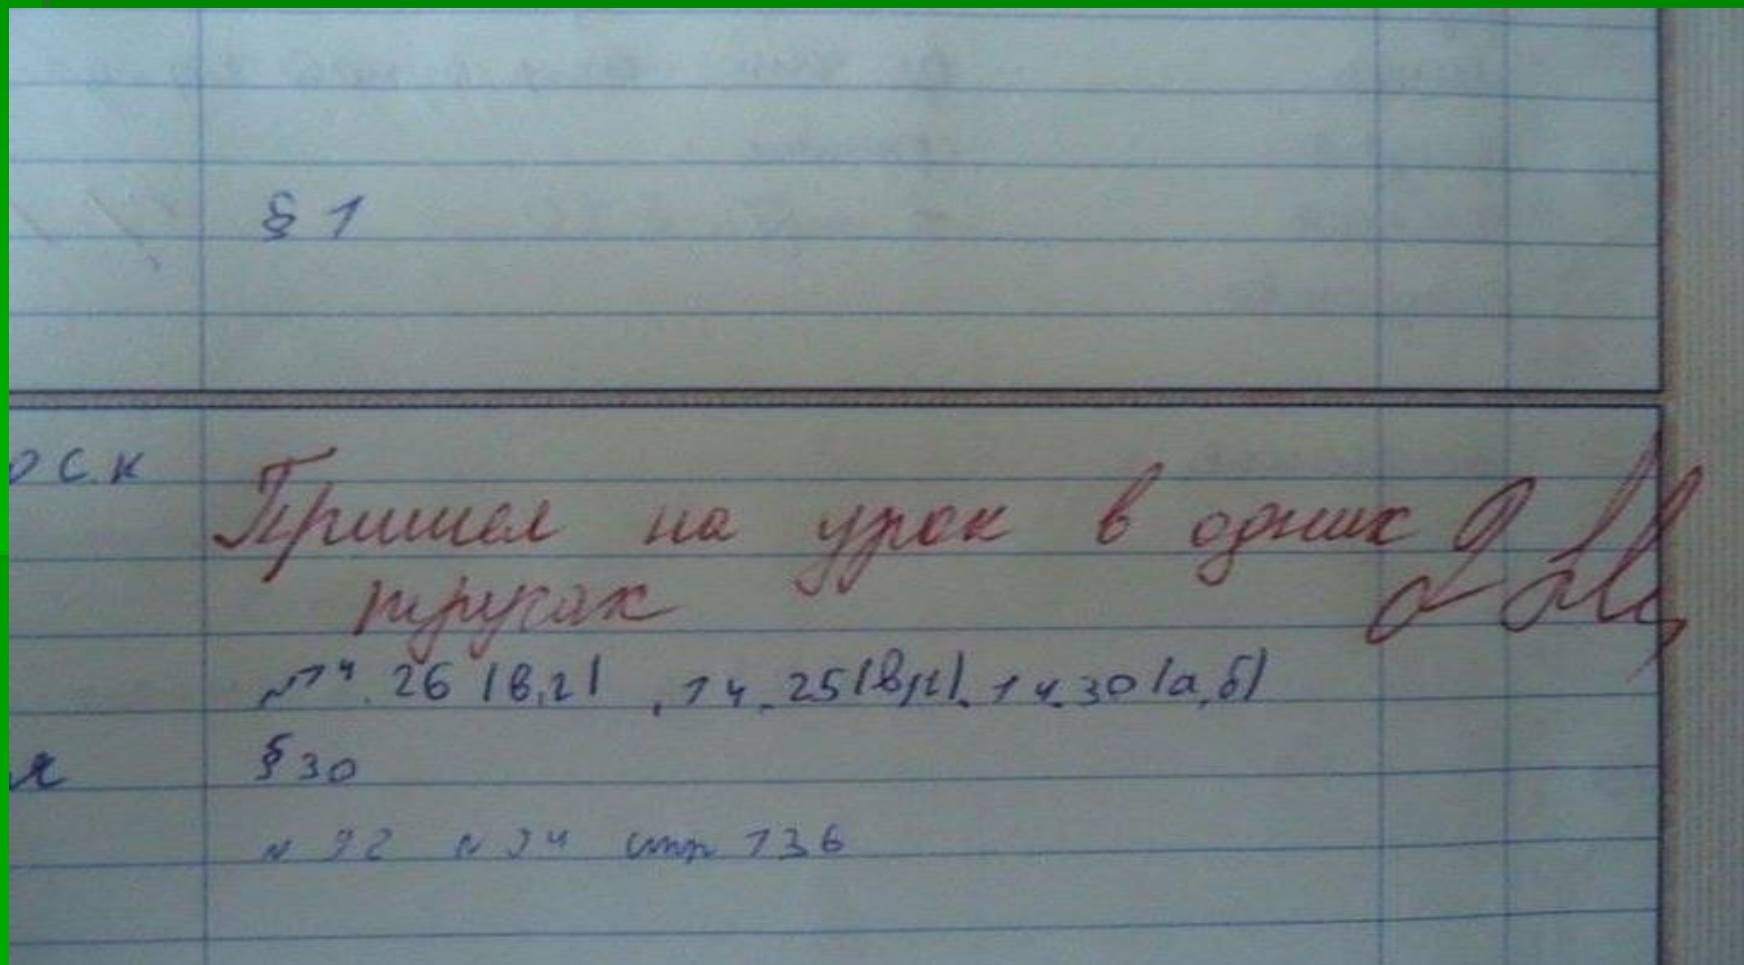 § 1
ОС.К
Пришел на урок в одних 2
трусах
№ 14.26 (в,г), 14.25(в,г), 14.30(а,б)
я § 30
№ 92 № 94 стр 136